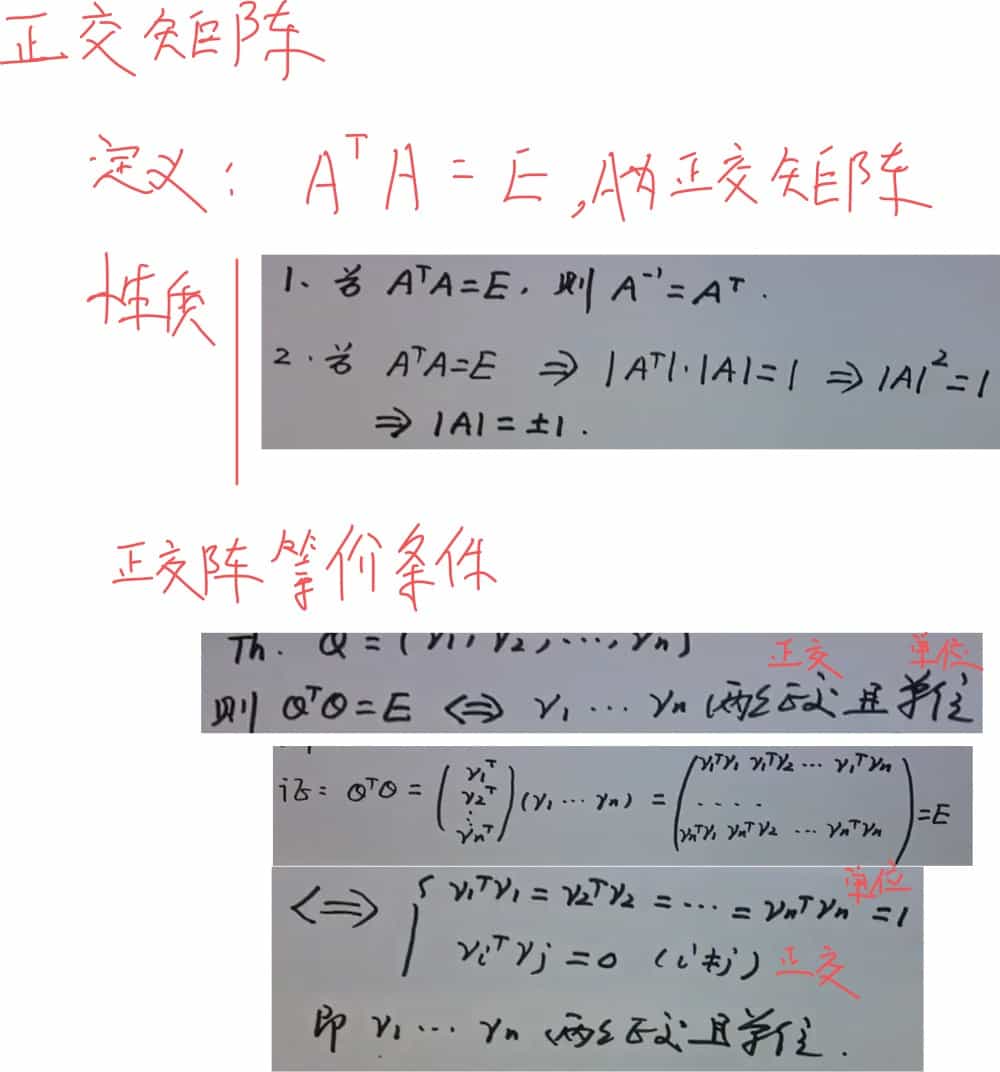 正交矩阵
定义: AᵀA = E, A为正交矩阵
性质
1、若 AᵀA=E, 则 A⁻¹=Aᵀ.
2.若 AᵀA=E ⇒ |Aᵀ|·|A|=1 ⇒ |A|²=1
⇒ |A|=±1.
正交阵等价条件
Th. Q=(γ₁,γ₂,…,γₙ)
正交 单位
则 QᵀQ=E ⇔ γ₁…γₙ 两两正交且单位
证: QᵀQ = (γ₁ᵀ γ₂ᵀ ⋮ γₙᵀ)(γ₁…γₙ) = (γ₁ᵀγ₁ γ₁ᵀγ₂ … γ₁ᵀγₙ .... γₙᵀγ₁ γₙᵀγ₂ … γₙᵀγₙ) =E
⇔ { γ₁ᵀγ₁ = γ₂ᵀγ₂ = … = γₙᵀγₙ =1 单位
γᵢᵀγⱼ=0 (i≠j) 正交
即 γ₁…γₙ 两两正交且单位.